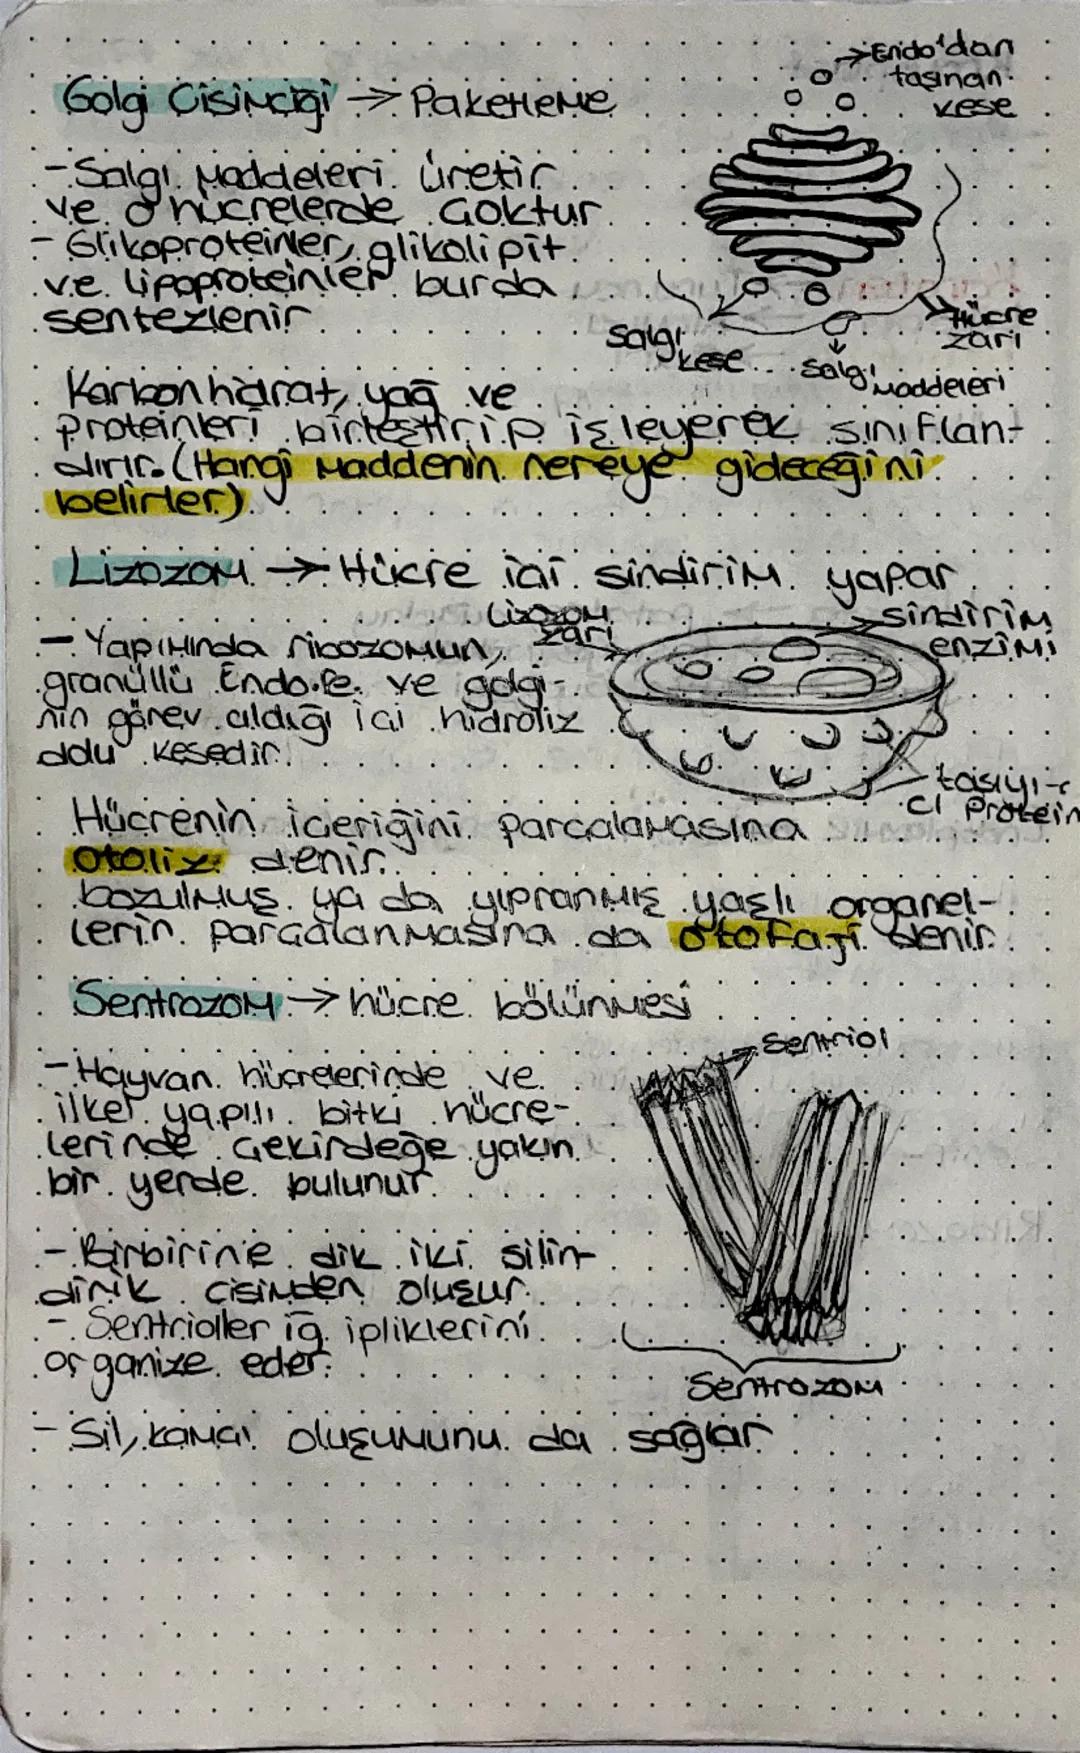 Golgi Cisimciği → Paketleme
→Endo'dan
taşınan
kese
- Salgı maddeleri üretir
ve o hücrelerde çoktur.
- Glikoproteinler, glikolipit
ve lipoproteinler burda
sentezlenir
Salgı
kese
Salgı
maddeleri
Hücre
zarı
Karbonhidrat, yağ ve
proteinleri birleştirip işleyerek sınıflan-
dırır. (Hangi maddenin nereye gideceğini
belirler)
Lizozom → Hücre içi sindirim yapar
Lizozom
zarı
sindirim
enzimi
- Yapımında ribozomun,
granüllü Endo.Pe. ve golgi-
nin görev aldığı içi hidroliz
dolu kesedir.
taşıyı-
cı Protein
Hücrenin içeriğini parçalamasına
otoliz denir.
bozulmuş ya da yıpranmış yaşlı organel-
lerin parçalanmasına da otofaji denir.
Sentrozom → hücre bölünmesi
→ Sentriol
- Hayvan hücrelerinde ve
ilkel yapılı bitki hücre-
lerinde çekirdeğe yakın
bir yerde bulunur.
- Birbirine dik iki silin-
dirik cisimden oluşur.
- Sentrioller iğ ipliklerini
organize eder.
Sentrozom
- Sil, kamçı oluşumunu da sağlar